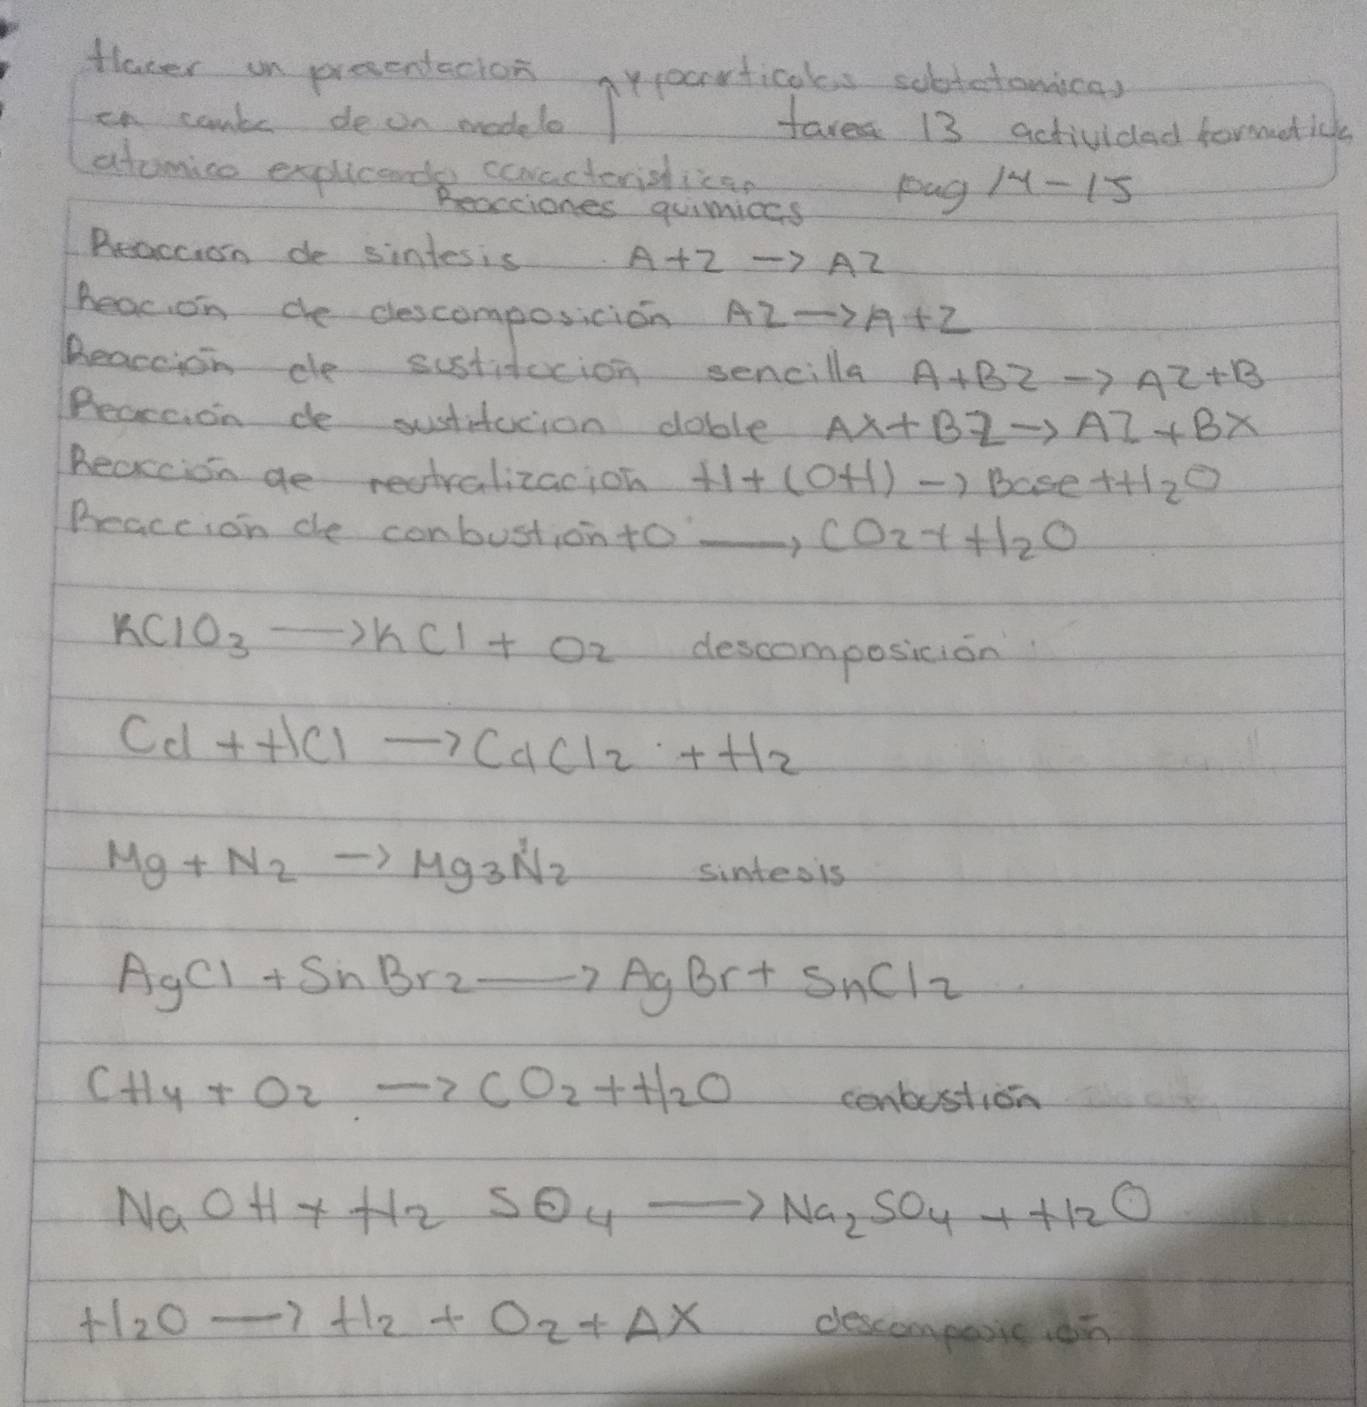 Hacer un presentación y particulas subtatomicas
en canba de un modelo tarea 13 actividad formativa
atomico explicando caracteristicas pag 14-15
Reacciones quimicas
Reacción de sintesis A+Z → AZ
Reación de descomposición AZ → A+Z
Reacción de sustitucion sencilla A+BZ → AZ+B
Reacción de sustitucion doble AX+BZ → AZ+BX
Reacción de neutralización H+(OH) → Base+H2O
Reacción de conbustión+O → CO2+H2O
KClO3 → KCl + O2 descomposición
Cd + HCl → CdCl2 + H2
Mg + N2 → Mg3N2 sintesis
AgCl + SnBr2 → AgBr + SnCl2
CH4 + O2 → CO2 + H2O conbustión
NaOH + H2 SO4 → Na2SO4 + H2O
H2O → H2 + O2 + AX descomposición